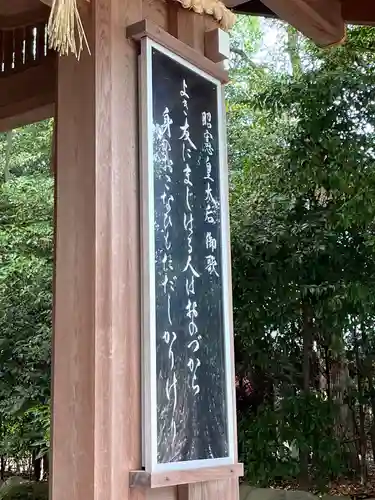 昭憲皇太后御歌
よき友にまじはる人はおのづから
身のおこなひもたゞしかりけり